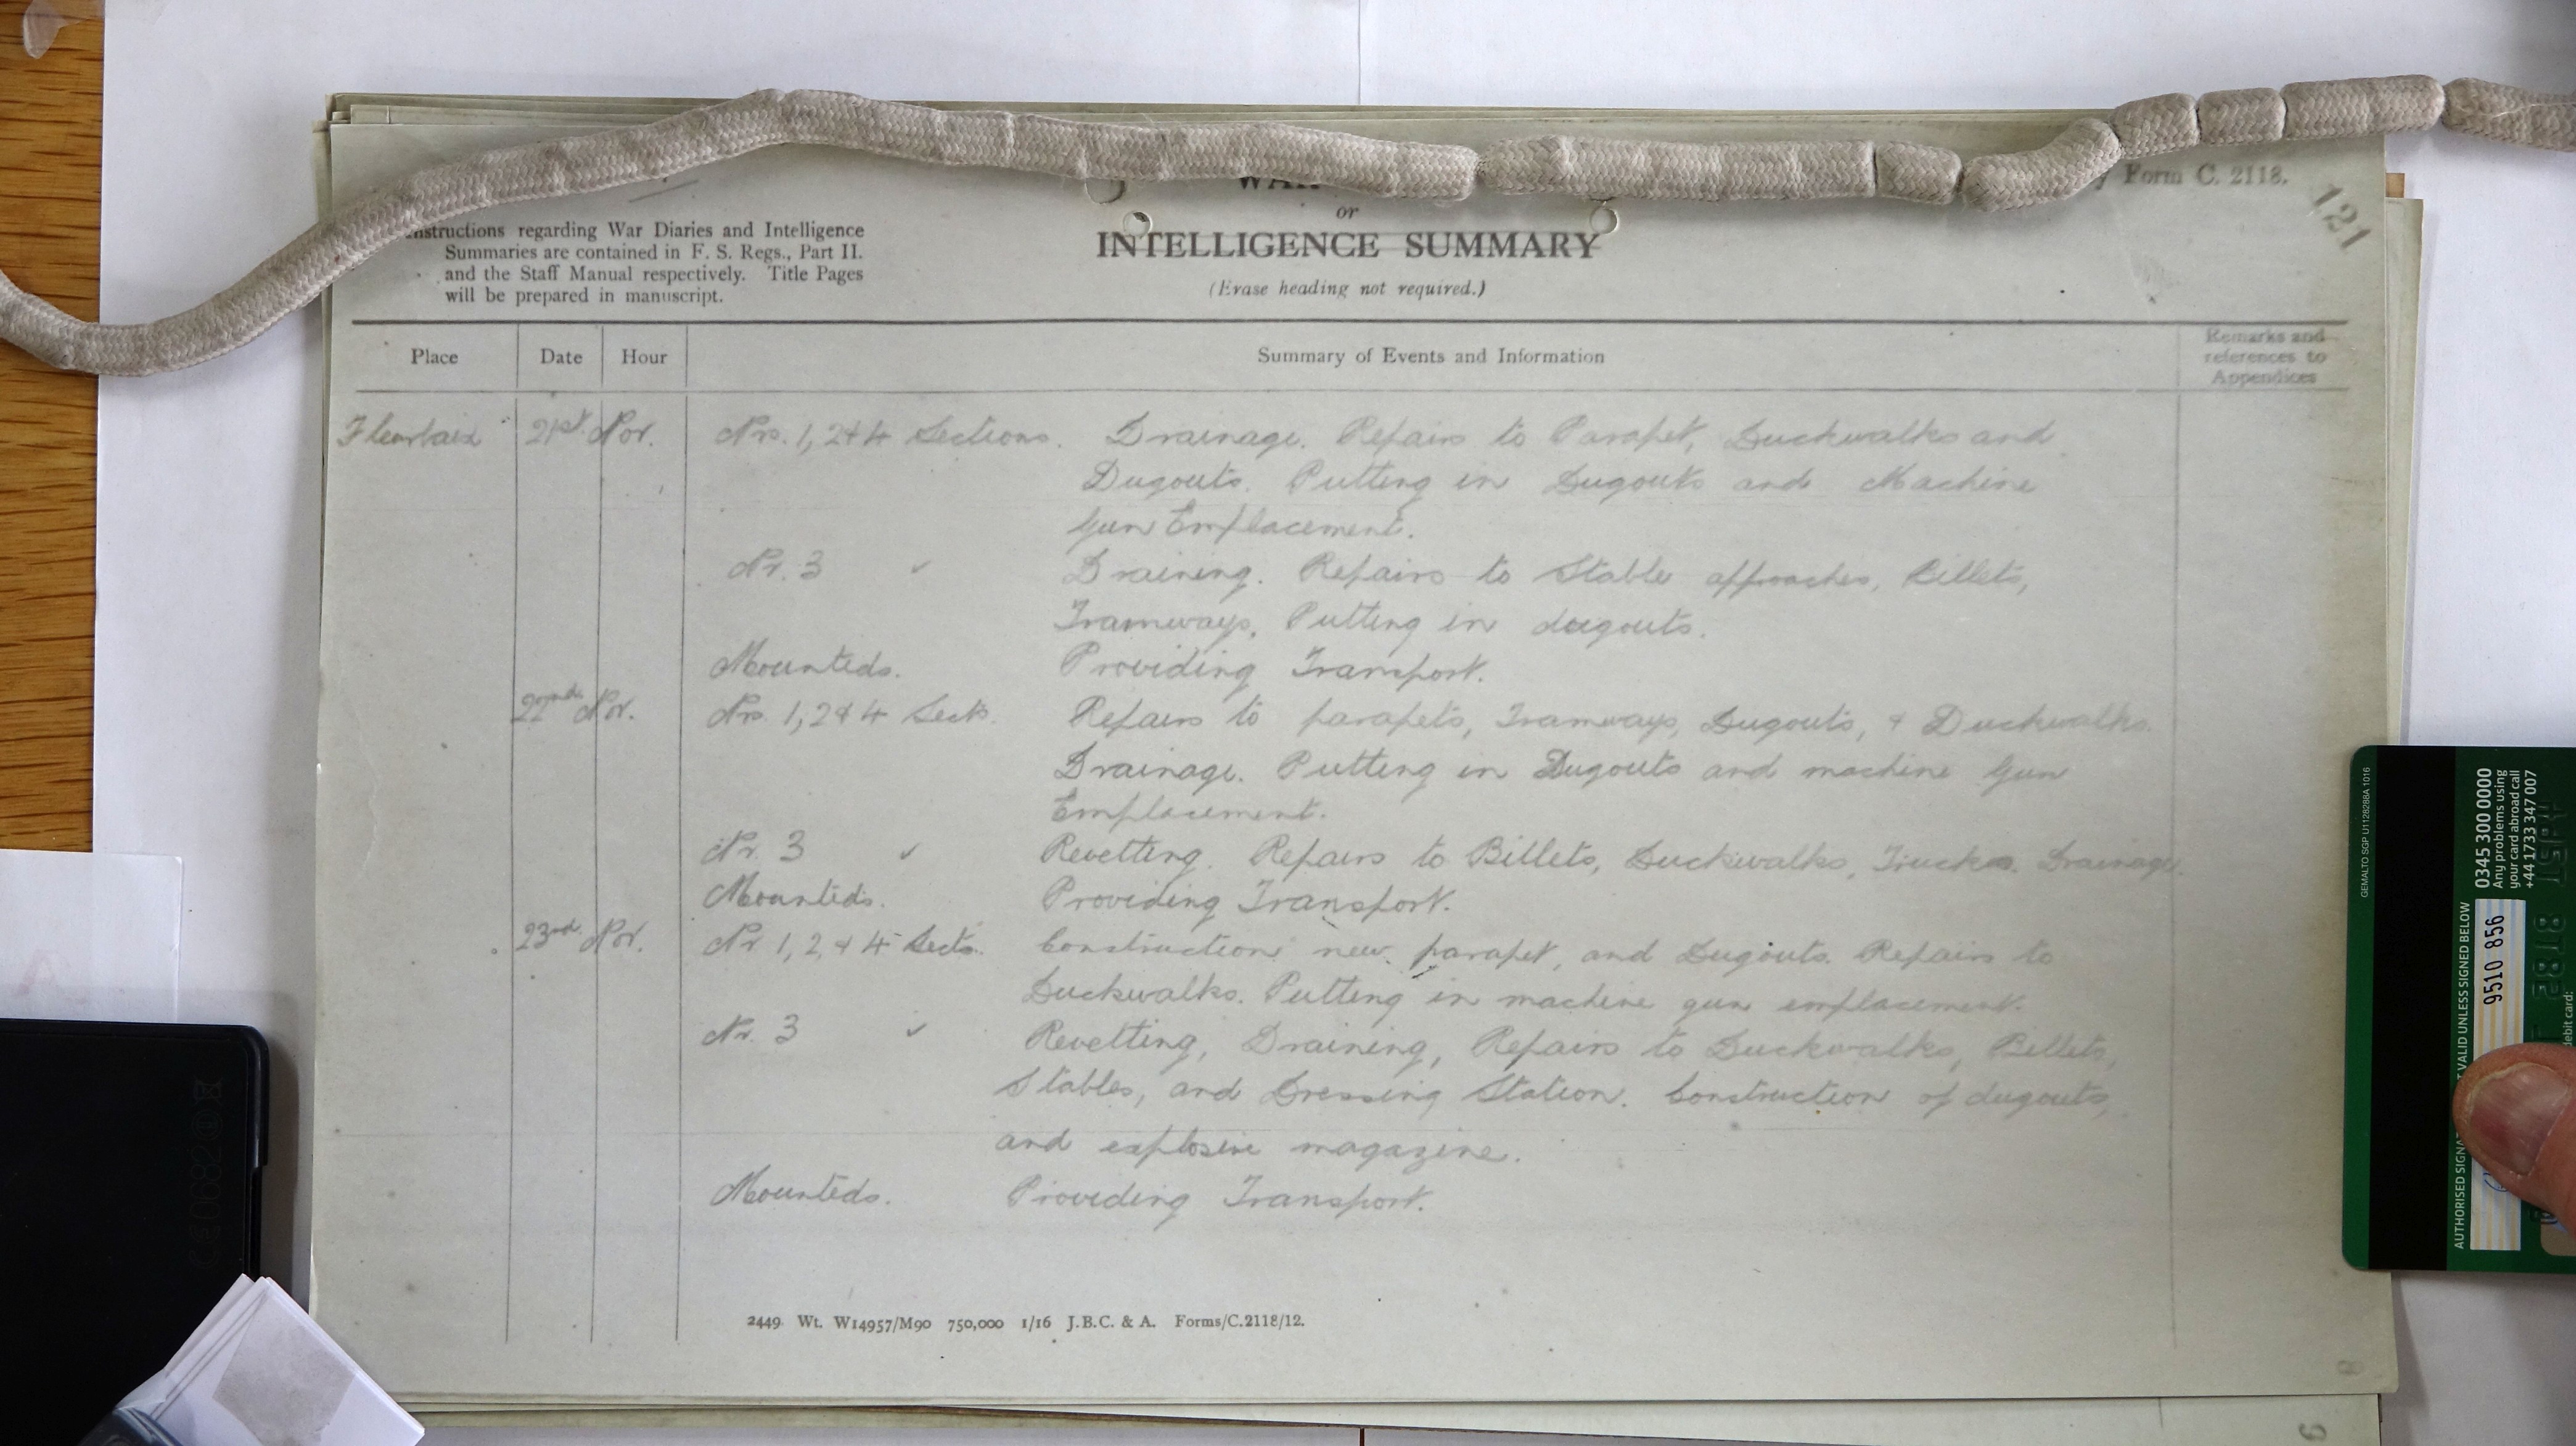 WAR
Form C. 2118.
121
or
Instructions regarding War Diaries and Intelligence
Summaries are contained in F. S. Regs., Part II.
and the Staff Manual respectively. Title Pages
will be prepared in manuscript.
INTELLIGENCE SUMMARY
(Erase heading not required.)
Place Date Hour Summary of Events and Information Remarks and references to Appendices
Fleurbaix 21st Nov. Nrs. 1, 2 & 4 Sections. Drainage. Repairs to Parapet, Duckwalks and
Dugouts. Putting in Dugouts and Machine
Gun Emplacement.
Nr. 3 " Draining. Repairs to Stable approaches, Billets,
Tramways, Putting in dugouts.
Mounteds. Providing Transport.
22nd Nov. Nrs. 1, 2 & 4 Sects. Repairs to parapets, Tramways, Dugouts, & Duckwalks.
Drainage. Putting in Dugouts and machine Gun
Emplacement.
Nr. 3 " Revetting. Repairs to Billets, Duckwalks, Trucks. Drainage.
Mounteds. Providing Transport.
23rd Nov. Nr 1, 2, & 4 Sects. Construction new parapet, and Dugouts. Repairs to
Duckwalks. Putting in machine gun emplacement.
Nr. 3 " Revetting, Draining, Repairs to Duckwalks, Billets,
Stables, and Dressing Station. Construction of dugouts,
and explosive magazine.
Mounteds. Providing Transport.
2449 Wt. W14957/M90 750,000 1/16 J.B.C. & A. Forms/C.2118/12.
GEMALTO SGP U1128288A 1016
0345 300 0000
Any problems using
your card abroad call
+44 1733 347 007
AUTHORISED SIGNAT VALID UNLESS SIGNED BELOW
9510 856
debit card: